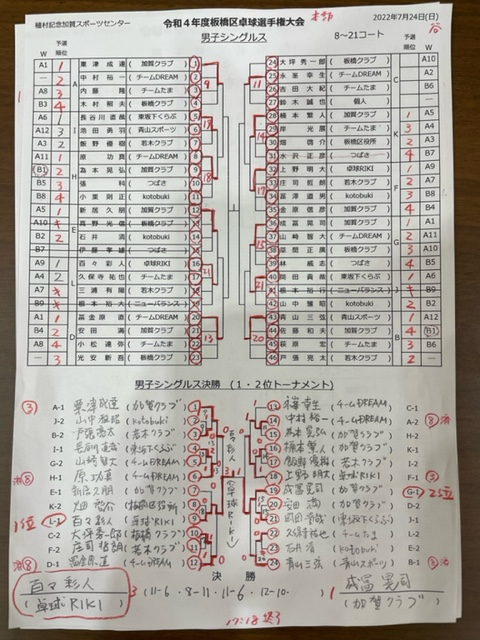 植村記念加賀スポーツセンター
令和4年度板橋区卓球選手権大会
本部
2022年7月24日(日)
男子シングルス
8～21コート
W 予選順位
予選順位 W
A1 1 粟津 成達 (加賀クラブ) 1
A2 2 中村 裕一 (チームDREAM) 2
A8 3 内藤 隆 (チームたま) 3
B3 4 木村 郁夫 (板橋クラブ) 4
A6 1 長谷川 直哉 (東坂下くらぶ) 5
A12 3 池田 勇羽 (青山スポーツ) 6
A3 2 飯野 優樹 (若木クラブ) 7
A11 1 原 功真 (チームDREAM) 8
B1 2 為本 晃弘 (加賀クラブ) 9
B5 3 張 科 (つばさ) 10
B8 4 小葉 則正 (kotobuki) 11
A5 1 新居 久朋 (加賀クラブ) 12
B2 2 石井 清 (kotobuki) 14
A9 1 百々 彩人 (卓球RIKI) 16
A4 2 久保寺 祐也 (チームたま) 17
A7 三浦 有陽 (若木クラブ) 18
B9 根本 裕大 (ニューバランス) 19
A1 1 冨金原 直 (チームDREAM) 20
B4 2 安田 満 (加賀クラブ) 21
A2 4 小松 達弥 (チームたま) 22
― 3 光安 新吾 (板橋クラブ) 23
24 大坪 秀一郎 (板橋クラブ) 2 A10
25 永峯 幸生 (チームDREAM) 1 A2
26 吉田 大紀 (チームたま) 3 B8
27 鈴木 誠也 (個人)
28 橋本 繁人 (加賀クラブ) 1 A5
29 岸 光展 (チームたま) 3 A4
30 畑 啓介 (板橋区役所) 2 A8
31 水沢 正彦 (つばさ) 4 B7
32 上野 明大 (卓球RIKI) 1 A9
33 庄司 哲朗 (若木クラブ) 2 A3
34 高澤 直男 (kotobuki) 3 B8
35 金原 信彦 (加賀クラブ) 4 B4
36 成富 晃司 (加賀クラブ) 1 A1
37 山崎 智大 (チームDREAM) 2 A11
38 草間 正廣 (板橋クラブ) 3 A10
39 林 威志 (つばさ) 4 B5
40 岡田 貴哉 (東坂下くらぶ) 1 A6
41 根本 裕行 (ニューバランス) B9
42 山中 雅昭 (kotobuki) 2 B2
43 青山 三弦 (青山スポーツ) 1 A12
44 佐藤 和夫 (加賀クラブ) 4 B1
45 荻原 宏 (チームたま) 3 B6
46 戸張 亮太 (若木クラブ) 2 ―
男子シングルス決勝 (1・2位トーナメント)
A-1 粟津成達 (加賀クラブ) 1
B-2 戸張亮太 (若木クラブ) 3
I-1 長谷川直哉 (東坂下くらぶ) 4
G-2 山崎智大 (チームDREAM) 5
H-1 原 功真 (チームDREAM) 6
E-1 新居久朋 (加賀クラブ) 7
K-2 畑 啓介 (板橋区役所) 8
1位 L-1 百々彩人 (卓球RIKI) 9
C-2 大坪秀一郎 (板橋クラブ) 10
F-2 庄司哲朗 (若木クラブ) 11
13 永峯幸生 (チームDREAM) C-1
14 中村裕一 (チームDREAM) A-2
15 為本晃弘 (加賀クラブ) H-2
16 橋本繁人 (加賀クラブ) K-1
17 飯野優樹 (若木クラブ) I-2
18 上野明大 (卓球RIKI) F-1
19 成冨晃司 (加賀クラブ) G-1 2位
20 安田 満 (加賀クラブ) D-2
21 岡田貴哉 (東坂下くらぶ) J-1
23 石井 清 (kotobuki) E-2
24 青山三弦 (青山スポーツ) B-1
決 勝
百々 彩人
(卓球RIKI)
3 (11-6 . 8-11 . 11-6 . 12-10. ) 1
成冨 晃司
(加賀クラブ)
17:18 終了